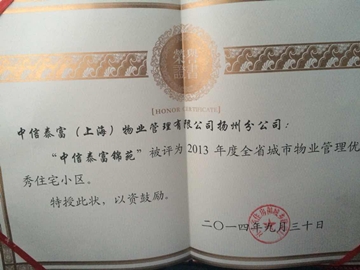 荣誉
证书
[HONOR CERTIFICATE]
中信泰富（上海）物业管理有限公司扬州分公司：
“中信泰富锦苑”被评为2013年度全省城市物业管理优
秀住宅小区。
特授此状，以资鼓励。
二〇一四年九月三十日